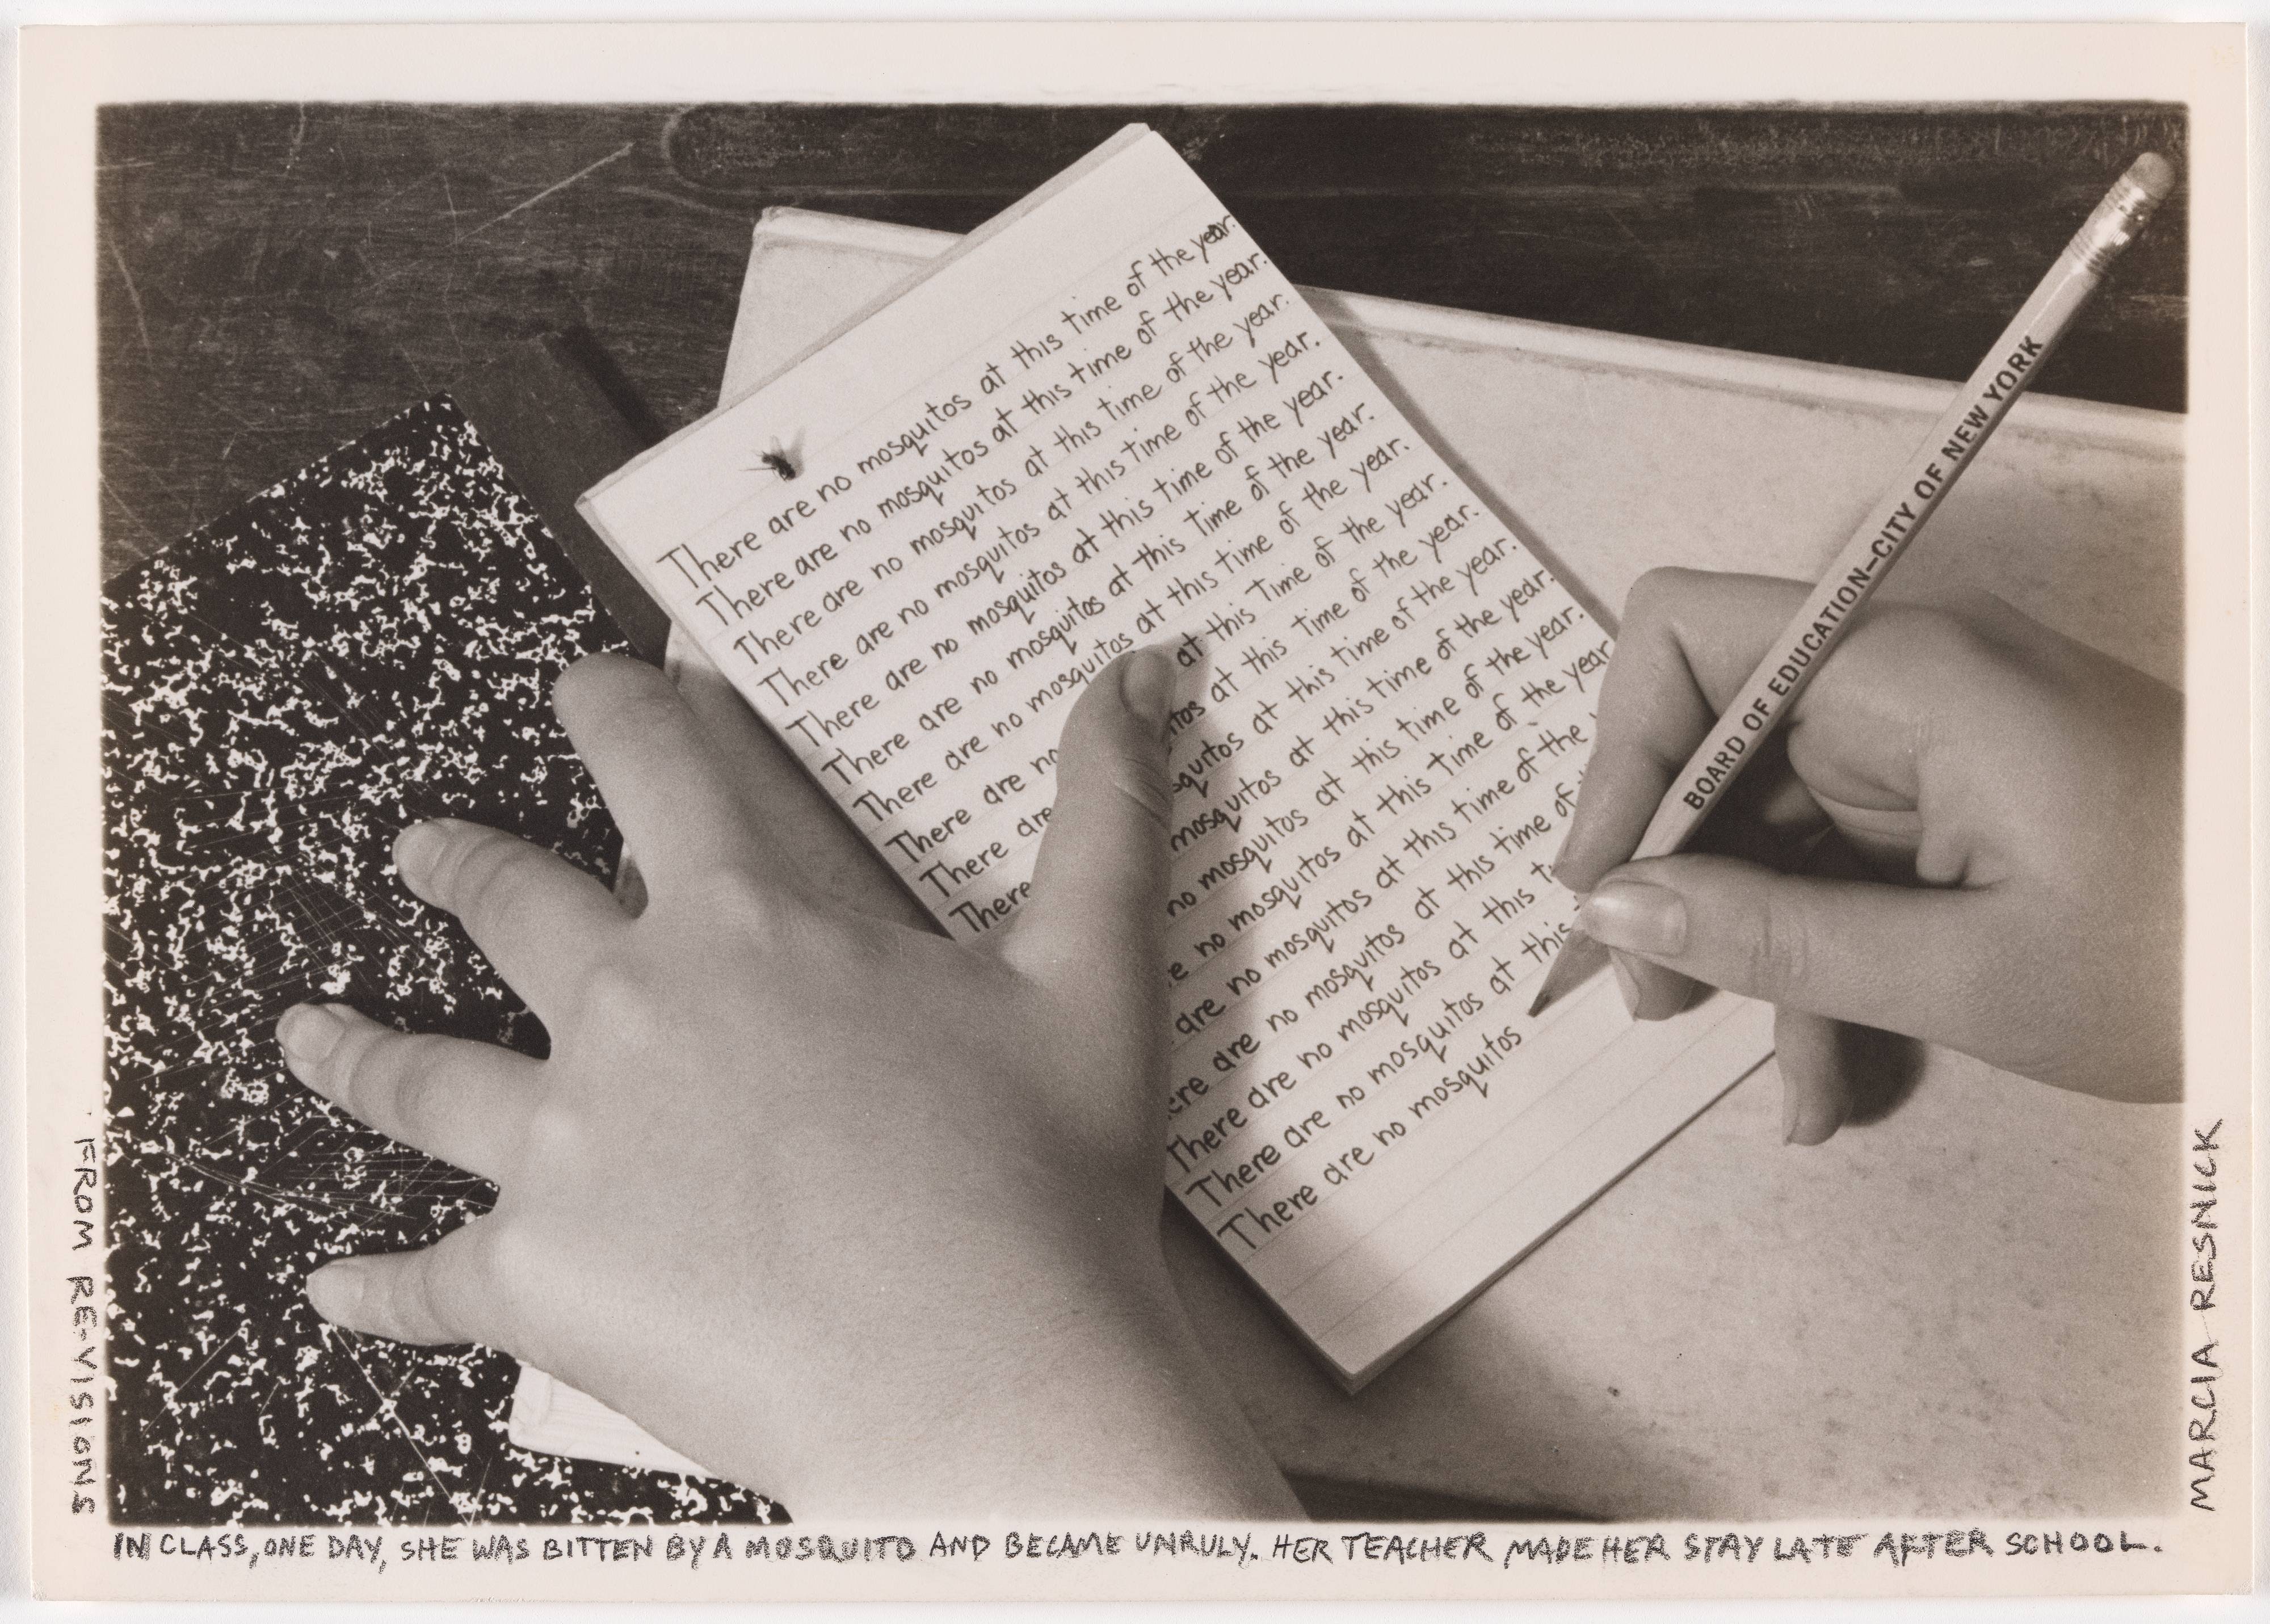 There are no mosquitos at this time of the year.
There are no mosquitos at this time of the year.
There are no mosquitos at this time of the year.
There are no mosquitos at this time of the year.
There are no mosquitos at this time of the year.
There are no mosquitos at this time of the year.
There are no mosquitos at this time of the year.
There are no at this time of the year.
There are tos at this time of the year.
There squitos at this time of the year.
mosquitos at this time of the year.
no mosquitos at this time of the year.
re no mosquitos at this time of the year
are no mosquitos at this time of the
ere are no mosquitos at this time of
There are no mosquitos at this t
There are no mosquitos at this
There are no mosquitos
BOARD OF EDUCATION–CITY OF NEW YORK
FROM RE-VISIONS
MARCIA RESNICK
IN CLASS, ONE DAY, SHE WAS BITTEN BY A MOSQUITO AND BECAME UNRULY. HER TEACHER MADE HER STAY LATE AFTER SCHOOL.